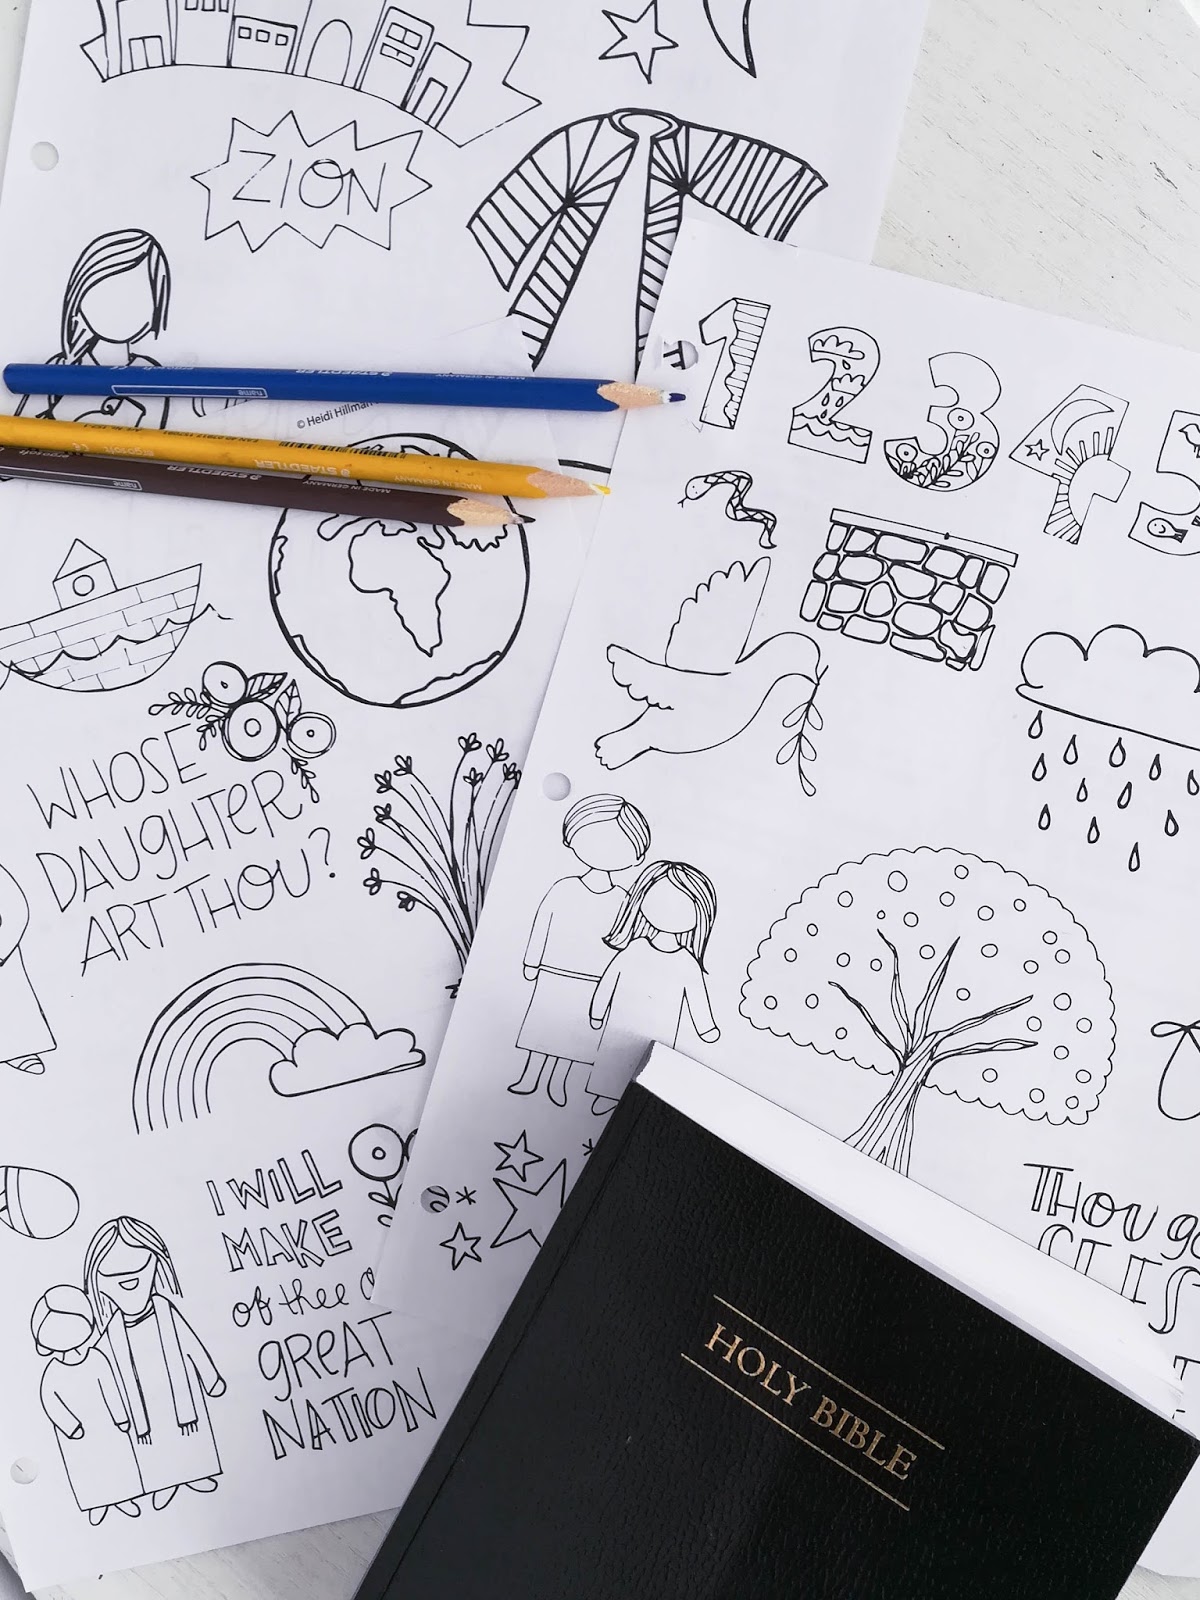 ZION
STAEDTLER
MADE IN GERMANY
name
© Heidi Hillman
STAEDTLER
MADE IN GERMANY
name
1 2 3 4 5
WHOSE
DAUGHTER
ART THOU?
I WILL
MAKE
of thee
GREAT
NATION
THOU
HOLY BIBLE